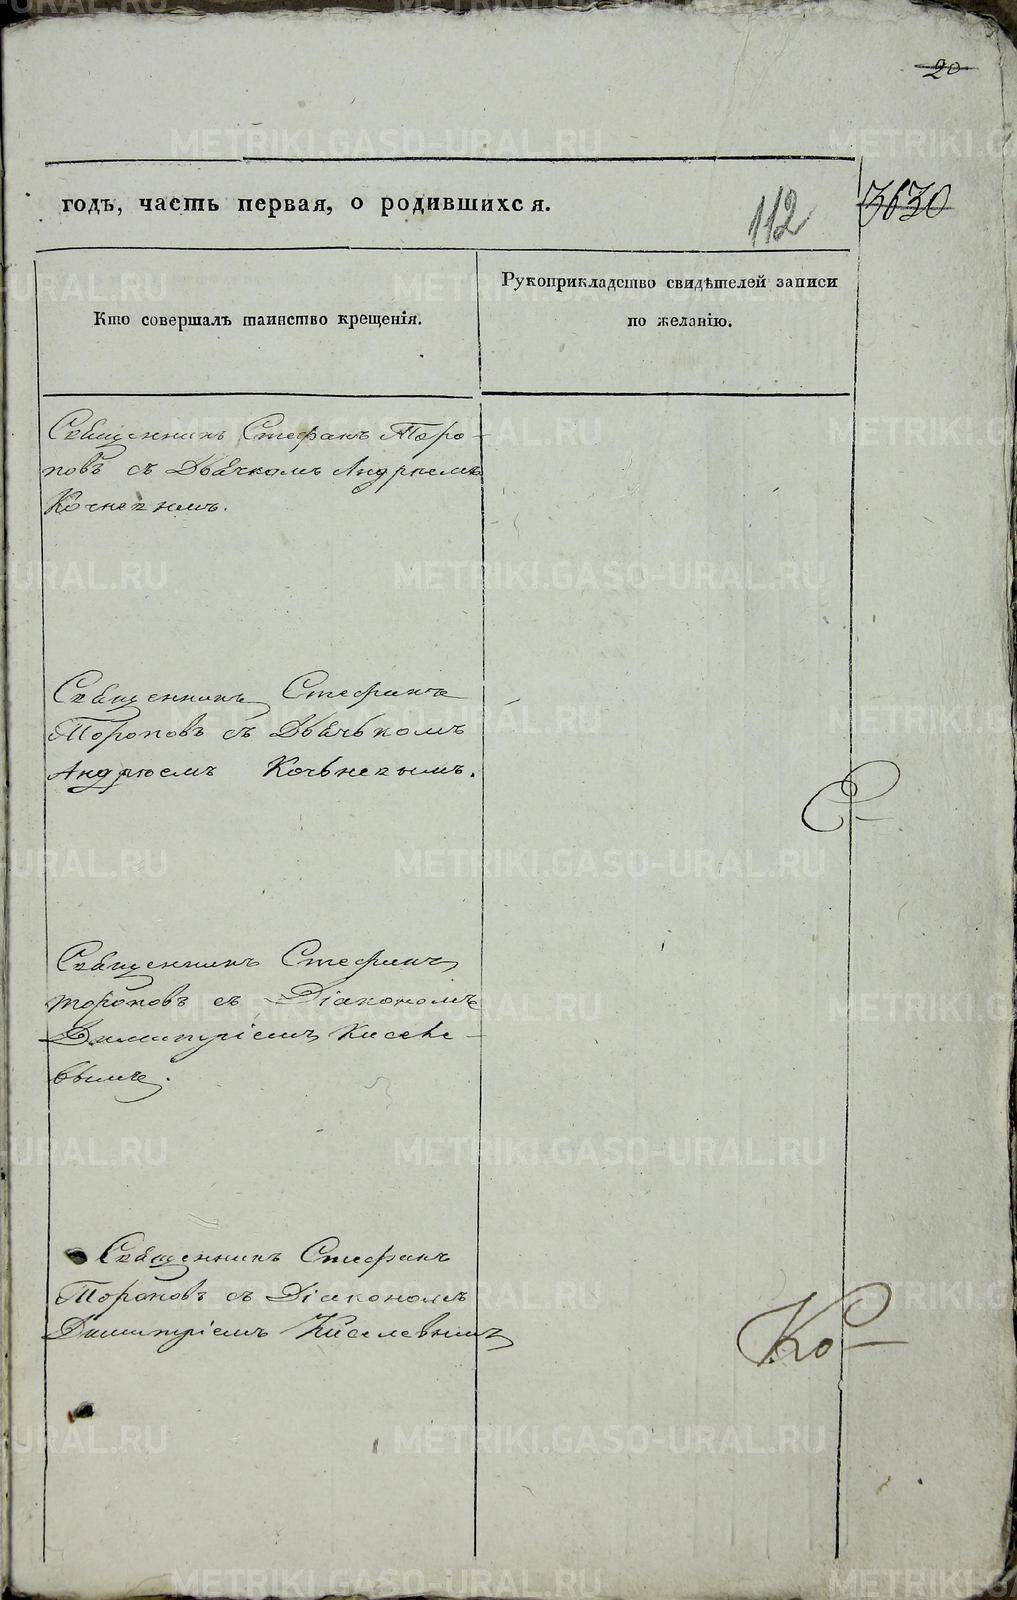 20
годъ, часть первая, о родившихся.
112
3630
Кто совершалъ таинство крещенія.
Рукоприкладство свидѣтелей записи
по желанію.
Священникъ Стефанъ Торо-
повъ съ Дьячкомъ Андреемъ
Кочневымъ.
Священникъ Стефанъ
Тороповъ съ Дьячькомъ
Андреемъ Кочьневымъ.
Священникъ Стефанъ
Тороповъ съ Діакономъ
Димитріемъ Киселе-
вымъ.
Священникъ Стефанъ
Тороповъ съ Діакономъ
Димитріемъ Киселевымъ
Ко
METRIKI.GASO-URAL.RU